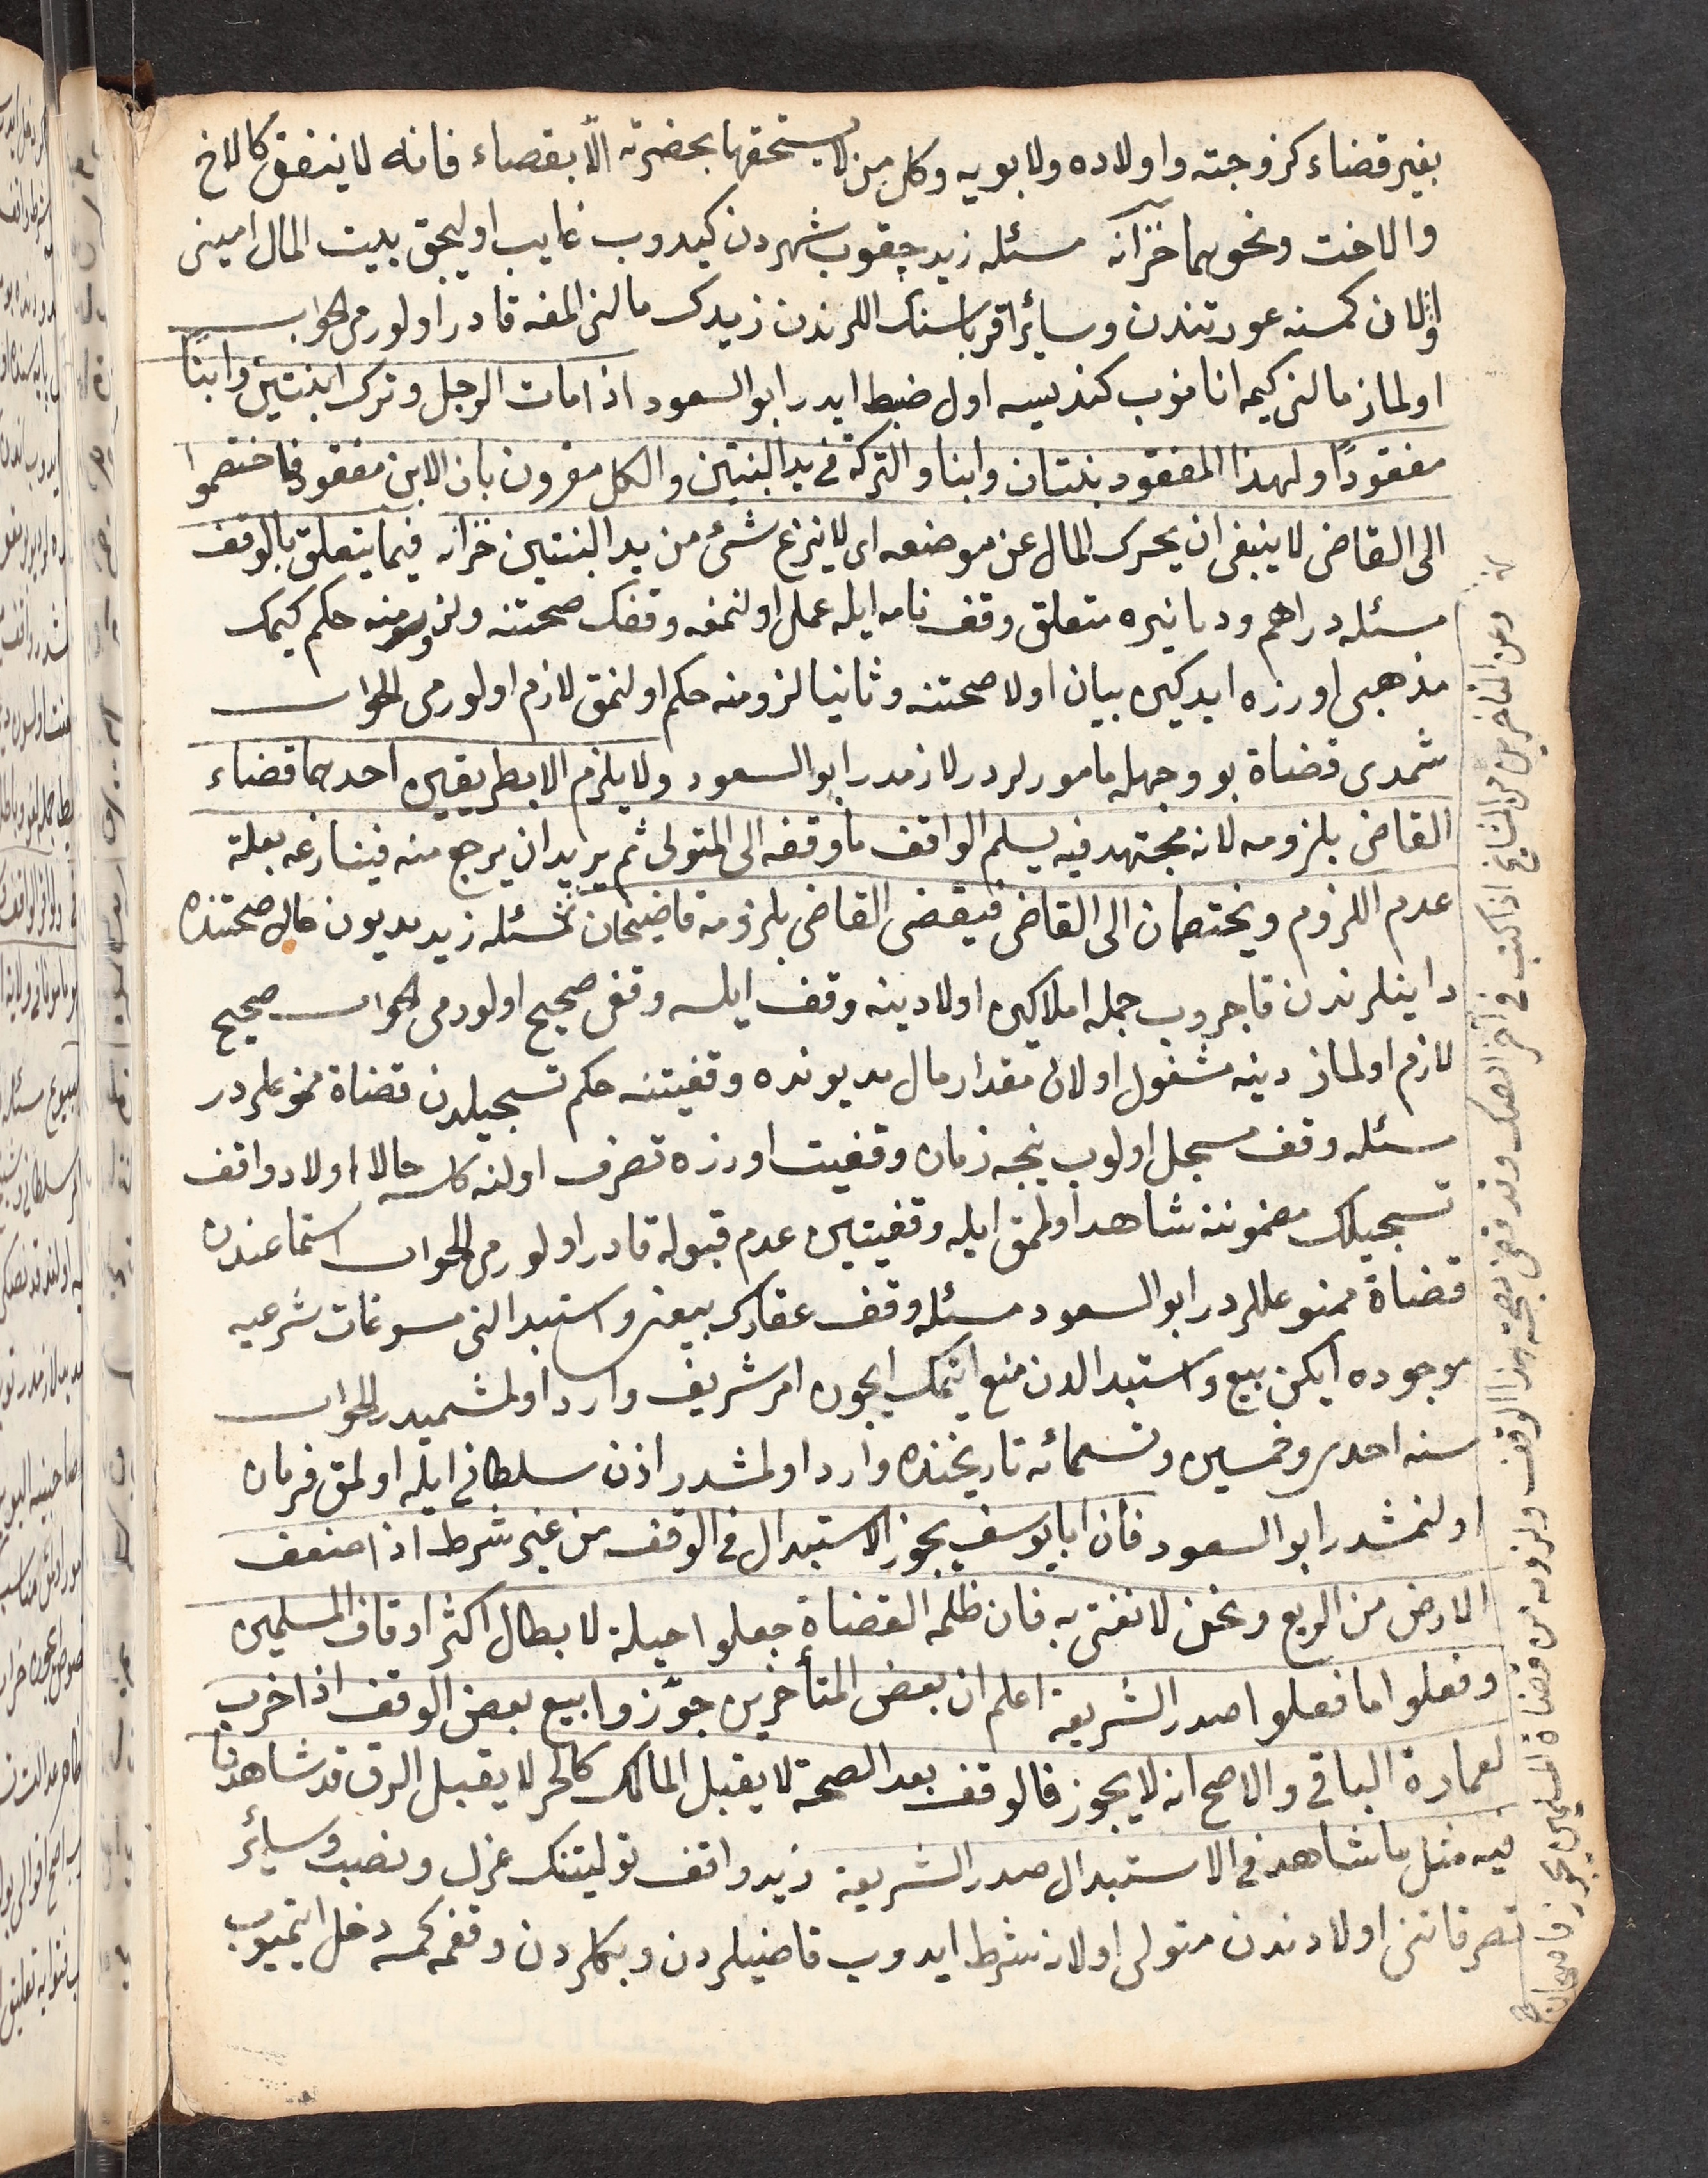 بغير قضاء كزوجته واولاده ولابويه وكل من لا يستحقها بحضرته الّا بقضاء فانه لا ينفق كالاخ
والاخت ونحوهما خزانه مسئله زيد چقوب شهردن كيدوب غايب اوليجق بيت المال امينى
اولان كمسنه عورتندن وسائر اقرباسنك اللرندن زيدك مالنى المغه قادر اولورمى الجواب
اولماز مالنى كيمه انانوب كنديسه اول ضبط ايدر ابو السعود اذا مات الرجل وترك ابنتين وابنًا
مفقودًا ولهذا المفقود بنتان وابنا والتركة فى يد البنتين والكل مقرون بان الابن مفقود فاختصموا
الى القاضى لا ينبغى ان يحرك المال عن موضعه اى لا ينزع شئ من يد البنتين خزانه فيما يتعلق بالوقف
مسئله دراهم ودنانيره متعلق وقف نامه ايله عمل اولنمغه وقفك صحتنه ولزومنه حكم كيمك
مذهبى اوزره ايدكين بيان اولا صحتنه وثانيا لزومنه حكم اولنمق لازم اولورمى الجواب
شمدى قضاة بو وجهله مامورلردر لازمدر ابو السعود ولا يلزم الا بطريقين احدهما قضاء
القاضى بلزومه لانه مجتهد فيه يسلم الواقف ما وقفه الى المتولى ثم يريد ان يرجع منه فينازعه بعلة
عدم اللزوم ويختصمان الى القاضى فيقضى القاضى بلزومه قاضيخان مسئله زيد مديون حال صحتنده
داينلرندن قاجروب جمله املاكين اولادينه وقف ايلسه وقفى صحيح اولورمى الجواب صحيح
لازم اولماز دينه مشغول اولان مقدار مال مديونده وقفيتنه حكم تسجيلدن قضاة ممنوعلردر
مسئله وقف مسجل اولوب نيجه زمان وقفيت اوزره تصرف اولنه كلسه حالا اولاد واقف
تسجيلك مضموننه شاهد اولمق ايله وقفيتين عدم قبوله قادر اولورمى الجواب استماعندن
قضاة ممنوعللردر ابو السعود مسئله وقف عقارك بيعنى واستبدالنى مسوغات شرعيه
موجوده ايكن بيع واستبدالدن منع ايتمك ايچون امر شريف وارد اولمشميدر الجواب
سنه احدى وخمسين وتسعمائه تاريخنده وارد اولمشدر اذن سلطانى ايله اولمق فرمان
اولنمشدر ابو السعود فان ابا يوسف يجوز الاستبدال فى الوقف من غير شرط اذا ضعف
الارض من الريع ونحن لا نفتى به فان ظلمه القضاة جعلوا حيلة لابطال اكثر اوقاف المسلمين
وفعلوا ما فعلوا صدر الشريعة اعلم ان بعض المتأخرين جوّزوا بيع بعض الوقف اذا خرب
لعمارة الباقى والاصح انه لا يجوز فالوقف بعد الصحة لا يقبل المالك كالحر لا يقبل الرق قد شاهدنا
فيه مثل ما شاهد فى الاستبدال صدر الشريعة زيد واقف توليتنك عزل ونصب وسائر
تصرفاتنى اولادندن متولى اولانه شرط ايدوب قاضيلردن وبكلردن وقفمه كمسه دخل ايتميوب
وعن المتأخرين من المشايخ اذا كتب فى آخر الصك وقد قضى بصحة هذا الوقف ولزومه من قضاة المسلمين يجوز قاضيخان